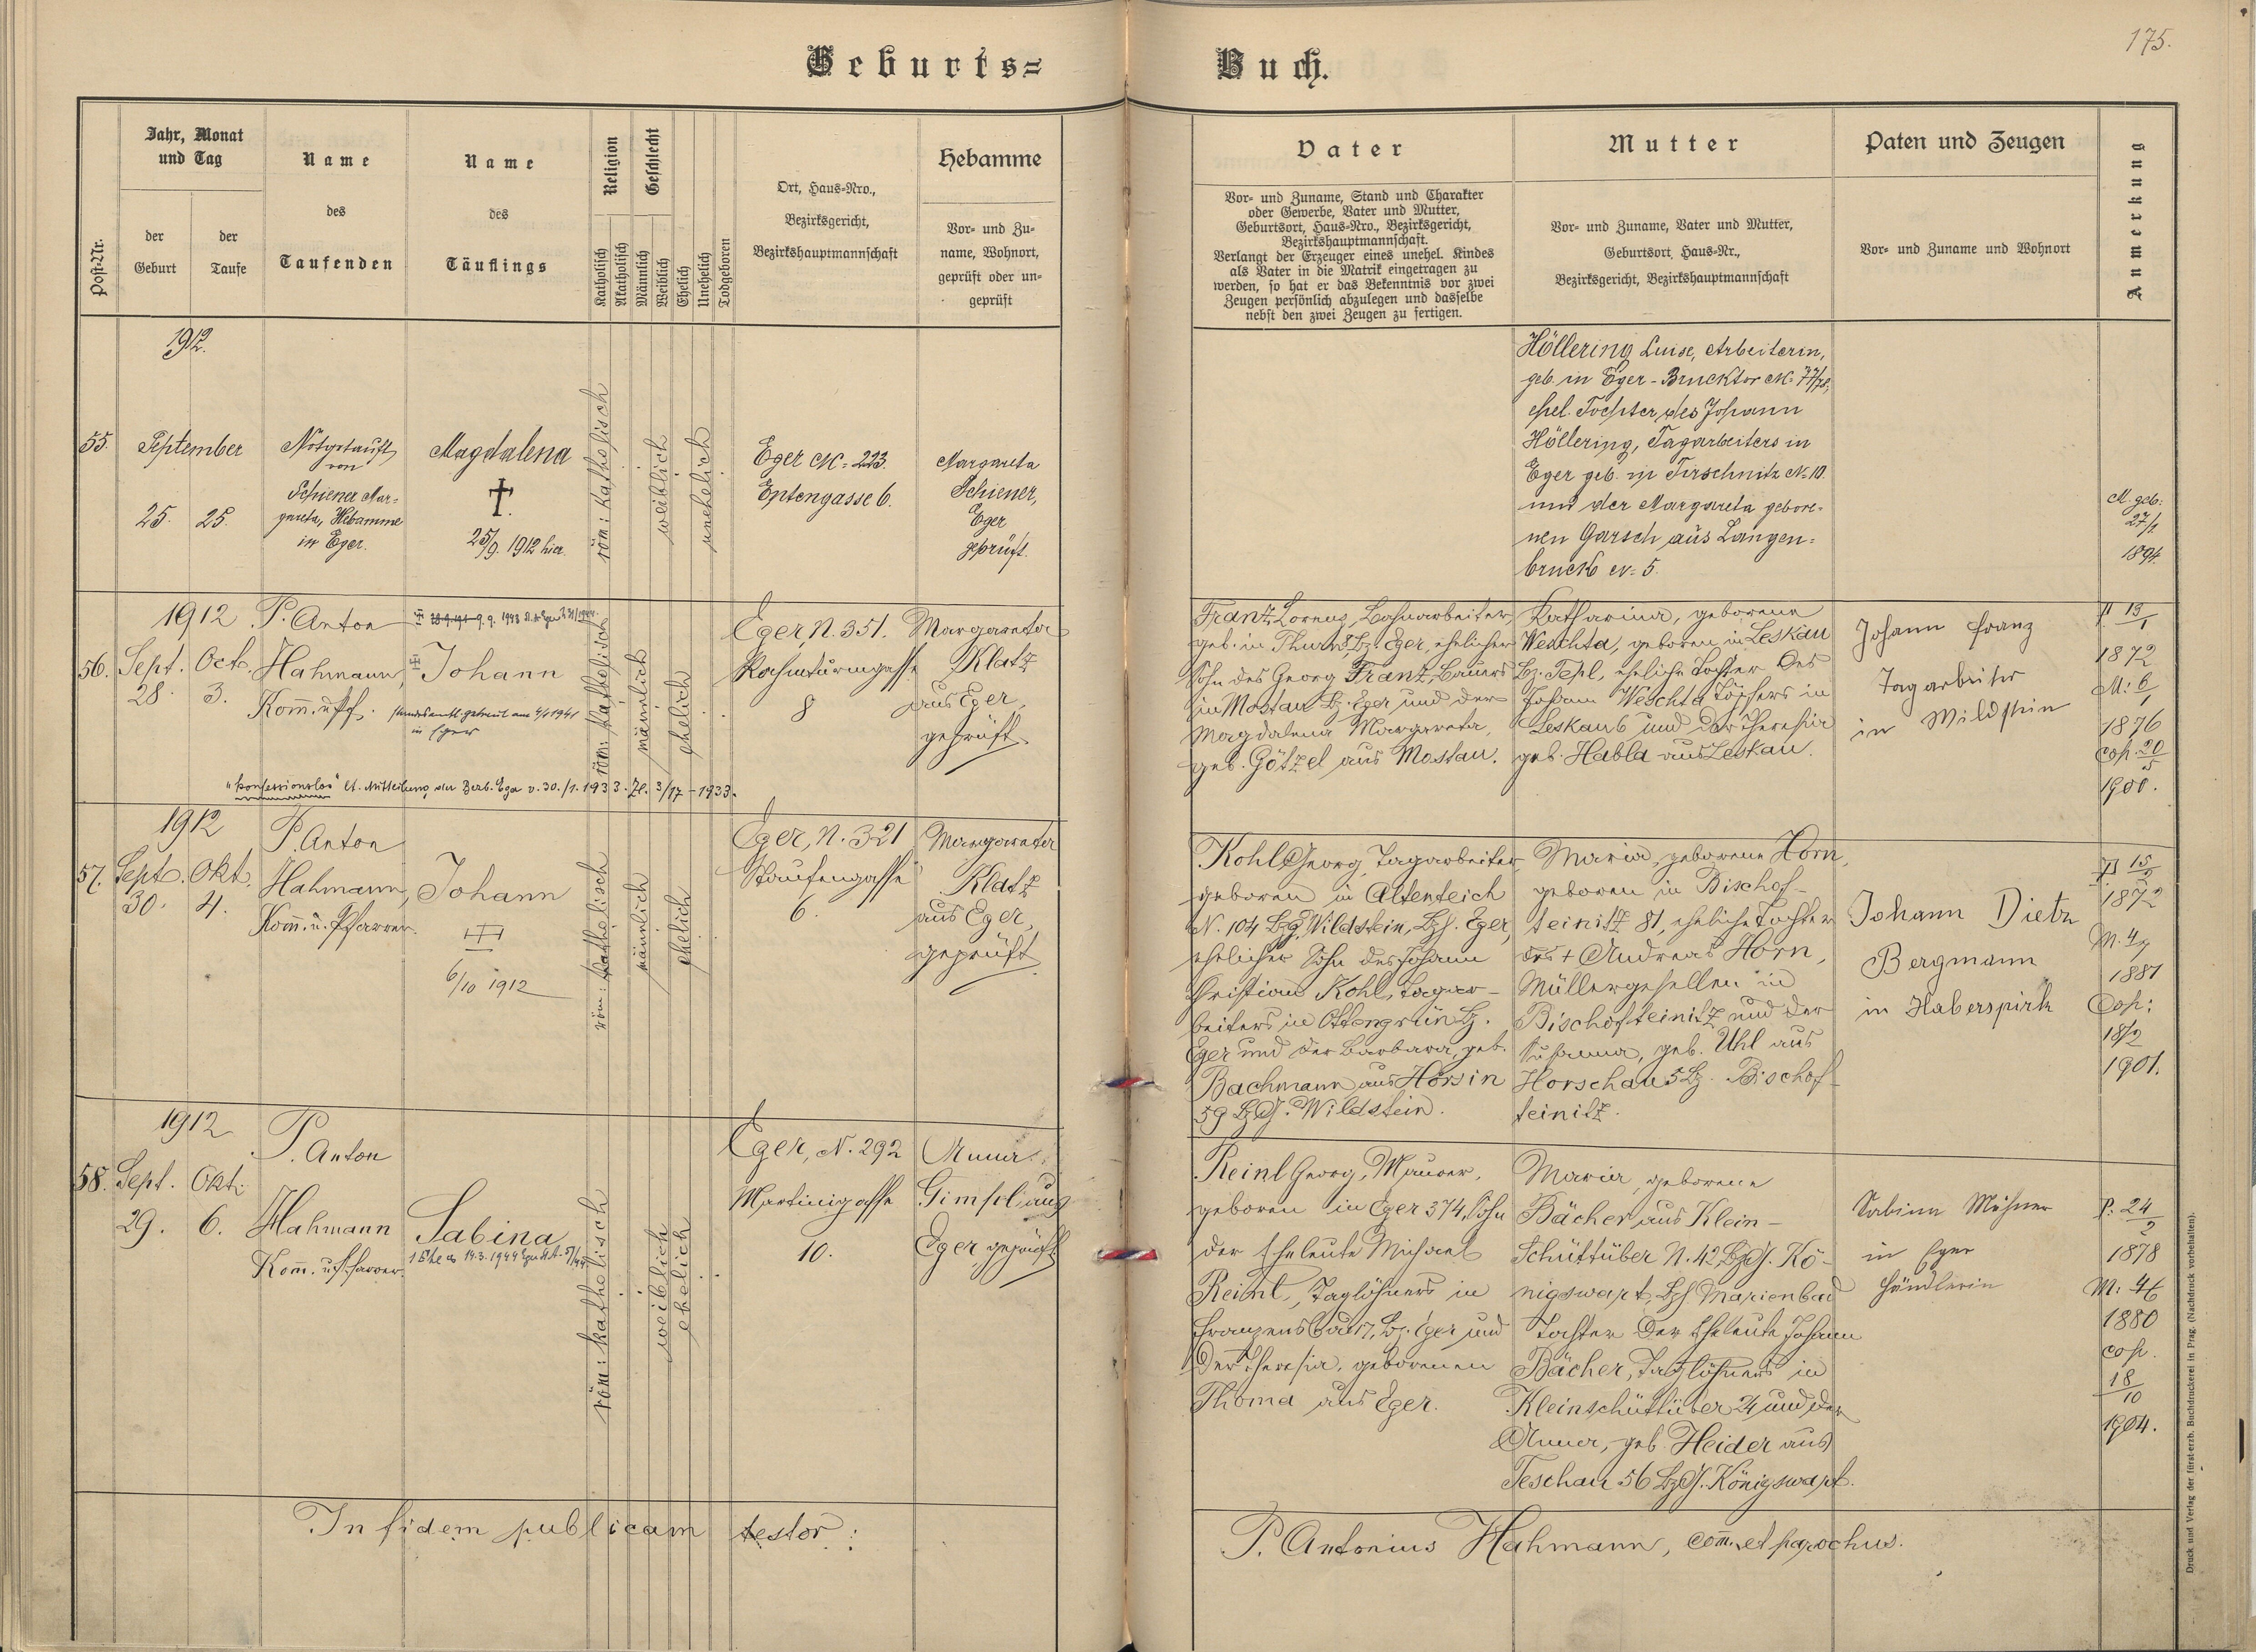 175.
Geburts=
Buch.
Post-Nr.
Jahr, Monat
und Tag
der
Geburt
der
Taufe
Name
des
Taufenden
Name
des
Täuflings
Religion
Katholisch
Akatholisch
Geschlecht
Männlich
Weiblich
Ehelich
Unehelich
Todgeboren
Ort, Haus-Nro.,
Bezirksgericht,
Bezirkshauptmannschaft
Hebamme
Vor- und Zu-
name, Wohnort,
geprüft oder un-
geprüft
Vater
Vor- und Zuname, Stand und Charakter
oder Gewerbe, Vater und Mutter,
Geburtsort, Haus-Nro., Bezirksgericht,
Bezirkshauptmannschaft.
Verlangt der Erzeuger eines unehel. Kindes
als Vater in die Matrik eingetragen zu
werden, so hat er das Bekenntnis vor zwei
Zeugen persönlich abzulegen und dasselbe
nebst den zwei Zeugen zu fertigen.
Mutter
Vor- und Zuname, Vater und Mutter,
Geburtsort, Haus-Nr.,
Bezirksgericht, Bezirkshauptmannschaft
Paten und Zeugen
Vor- und Zuname und Wohnort
Anmerkung
1912.
55.
September
25. 25.
Notgetauft
von
Schiener Mar=
gareta, Hebamme
in Eger.
Magdalena
†
25/9. 1912 hier.
röm: katholisch
weiblich
unehelich
Eger N= 223.
Margareta
Schiener,
Eger
geprüft.
Höllering Luise, Arbeiterin,
geb. in Eger-Brucktor N= 77/78,
ehel. Tochter des Johann
Höllering, Tagarbeiters in
Eger geb. in Tirschnitz N= 10.
und der Margareta gebore=
nen Garsch aus Langen=
bruck N= 5.
M. geb:
1894.
1912
56.
Sept. Oct.
28. 3.
P. Anton
Hahmann,
Komm. u. Pf.
Johann
standesamtl. getraut am 4/1 1941
in Eger
röm: katholisch
männlich
ehelich
Eger, N. 351.
8
Margareta
Klatz
aus Eger,
geprüft.
Franz Lorenz, Bahnarbeiter,
Sohn des Georg Franz, Bauers
in Mostau Bz. Eger und der
Magdalena Margareta,
geb. Götzel aus Mostau.
Katharina, geborene
Weschta, geboren in Leskau
Bz. Tepl, eheliche Tochter des
Johann Weschta Töpfers in
Leskau 6 und der Theresia
geb. Habla aus Leskau.
Johann Franz
Tagarbeiter
in Wildstein
1872
M: 6/1
1876
Cop. 20/5
1900.
"konfessionslos" lt. Mitteilung der Bezb. Eger v. 30./1. 1933. Zl. 3/17 - 1933.
1912
57.
Sept. Okt.
30. 4.
P. Anton
Hahmann,
Komm. u. Pfarrer.
Johann
6/10 1912
röm: katholisch
männlich
ehelich
Eger, N. 321
Staufengasse
6.
Margareta
Klatz
aus Eger,
geprüft
Kohl Georg, Tagarbeiter,
geboren in Altenteich
N. 104 BzG. Wildstein, Bzh. Eger,
ehelicher Sohn des Johann
Christian Kohl, Tagar-
beiters in Ottengrün Bz.
Eger und der Barbara, geb.
Bachmann aus Horsin
59 BzG. Wildstein.
Maria, geborene Horn,
geboren in Bischof-
teinitz 81, eheliche Tochter
des † Andreas Horn,
Müllergesellen in
Bischofteinitz und der
Susanna, geb. Uhl aus
Horschau 5 Bz. Bischof-
teinitz.
Johann Dietz
Bergmann
in Haberspirk
1872
1881
Cop:
18/2
1901.
1912
58.
Sept. Okt.
29. 6.
P. Anton
Hahmann
Komm. u. Pfarrer.
Sabina
röm: katholisch
weiblich
ehelich
Eger, N. 292
Martinigasse
10.
Anna
Gimpel aus
Eger, geprüft
Reinl Georg, Maurer,
geboren in Eger 374, Sohn
der Eheleute Michael
Reinl, Taglöhners in
Franzensbad 17, Bz. Eger und
der Theresia, geborenen
Thoma aus Eger.
Maria, geborene
Bächer aus Klein-
Schüttüber N. 42, BzG. Kö-
nigswart, Bzh. Marienbad
Tochter der Eheleute Johann
Bächer, Taglöhners in
Kleinschüttüber 24 und der
Anna, geb. Heider aus
Teschau 56 BzG. Königswart.
Sabina
in Eger
Händlerin
P: 24/2
1878
M: 4/6
1880
cop.
18/10
1904.
In fidem publicam testor:
P. Antonius Hahmann, com̄. et parochus.
Druck und Verlag der fürst-erzb. Buchdruckerei in Prag. (Nachdruck vorbehalten).